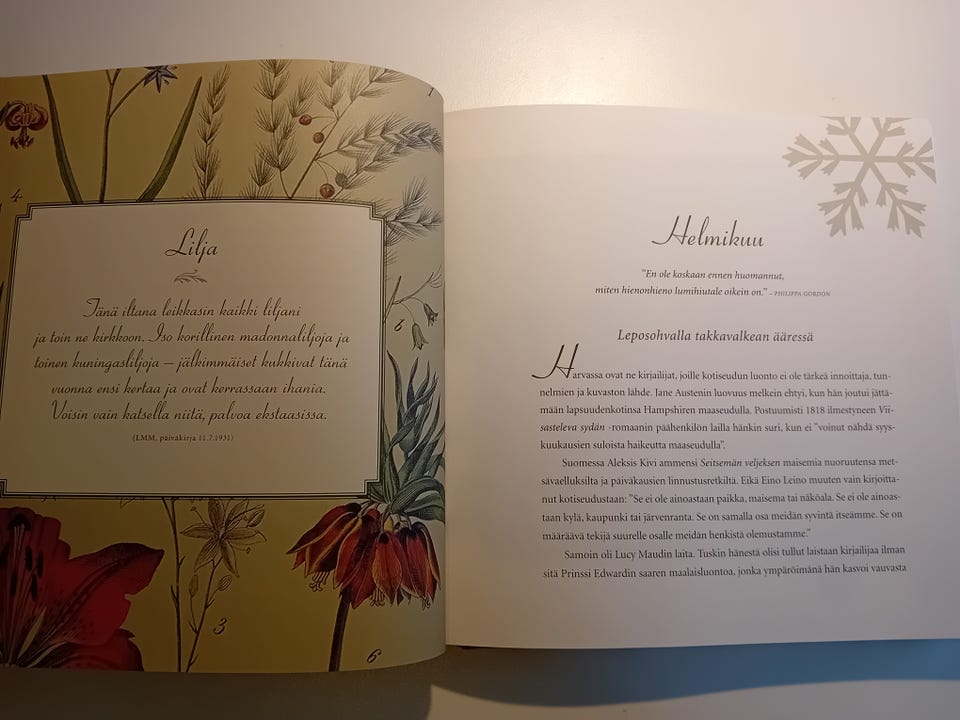 4
Lilja
Tänä iltana leikkasin kaikki liljani
ja toin ne kirkkoon. Iso korillinen madonnaliljoja ja
toinen kuningasliljoja – jälkimmäiset kukkivat tänä
vuonna ensi kertaa ja ovat kerrassaan ihania.
Voisin vain katsella niitä, palvoa ekstaasissa.
(LMM, päiväkirja 11.7.1931)
6
3
6
Helmikuu
"En ole koskaan ennen huomannut,
miten hienonhieno lumihiutale oikein on." – PHILIPPA GORDON
Leposohvalla takkavalkean ääressä
Harvassa ovat ne kirjailijat, joille kotiseudun luonto ei ole tärkeä innoittaja, tun-
nelmien ja kuvaston lähde. Jane Austenin luovuus melkein ehtyi, kun hän joutui jättä-
mään lapsuudenkotinsa Hampshiren maaseudulla. Postuumisti 1818 ilmestyneen Vii-
sasteleva sydän -romaanin päähenkilön lailla hänkin suri, kun ei "voinut nähdä syys-
kuukausien suloista haikeutta maaseudulla".
Suomessa Aleksis Kivi ammensi Seitsemän veljeksen maisemia nuoruutensa met-
sävaelluksilta ja päiväkausien linnustusretkiltä. Eikä Eino Leino muuten vain kirjoitta-
nut kotiseudustaan: "Se ei ole ainoastaan paikka, maisema tai näköala. Se ei ole ainoas-
taan kylä, kaupunki tai järvenranta. Se on samalla osa meidän syvintä itseämme. Se on
määräävä tekijä suurelle osalle meidän henkistä olemustamme."
Samoin oli Lucy Maudin laita. Tuskin hänestä olisi tullut laistaan kirjailijaa ilman
sitä Prinssi Edwardin saaren maalaisluontoa, jonka ympäröimänä hän kasvoi vauvasta